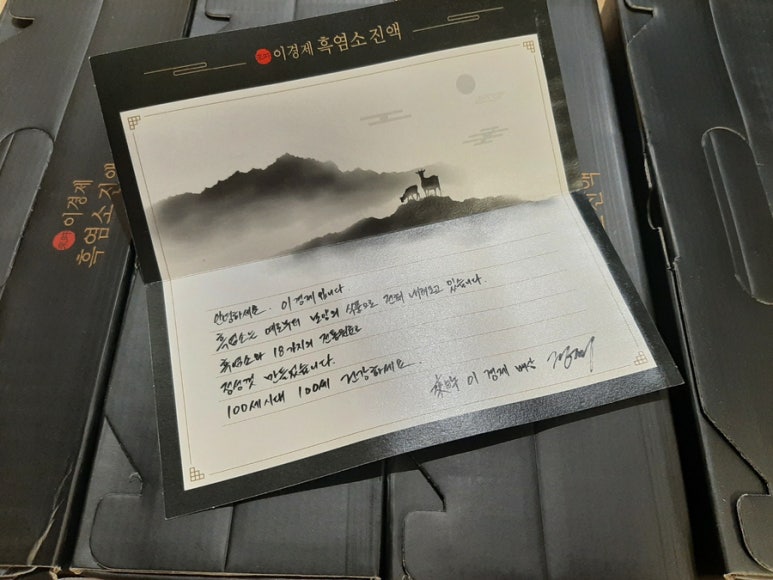 이경제 흑염소 진액
안녕하세요. 이경제입니다
흑염소는 예로부터 보양의 식품으로 전해 내려오고 있습니다.
흑염소와 18가지의 전통원료로
정성껏 만들었습니다.
100세시대 100세 건강하세요.
이경제 배상
이경제
흑염소 진액